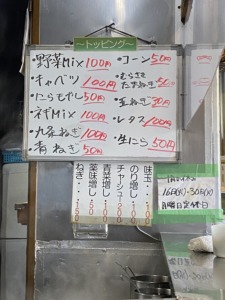 ～トッピング～
・野菜Mix 100円
・キャベツ 100円
・にらもやし 50円
・ネギMix 100円
・九条ねぎ 100円
・青ねぎ 50円
・コーン 50円
・むらさきたまねぎ 50円
・玉ねぎ 50円
・レタス 100円
・生にら 50円
味玉
のり増し
チャーシュー
青菜増し
薬味増し
ねぎ
16日(火)・30日(火)
月曜日定休日